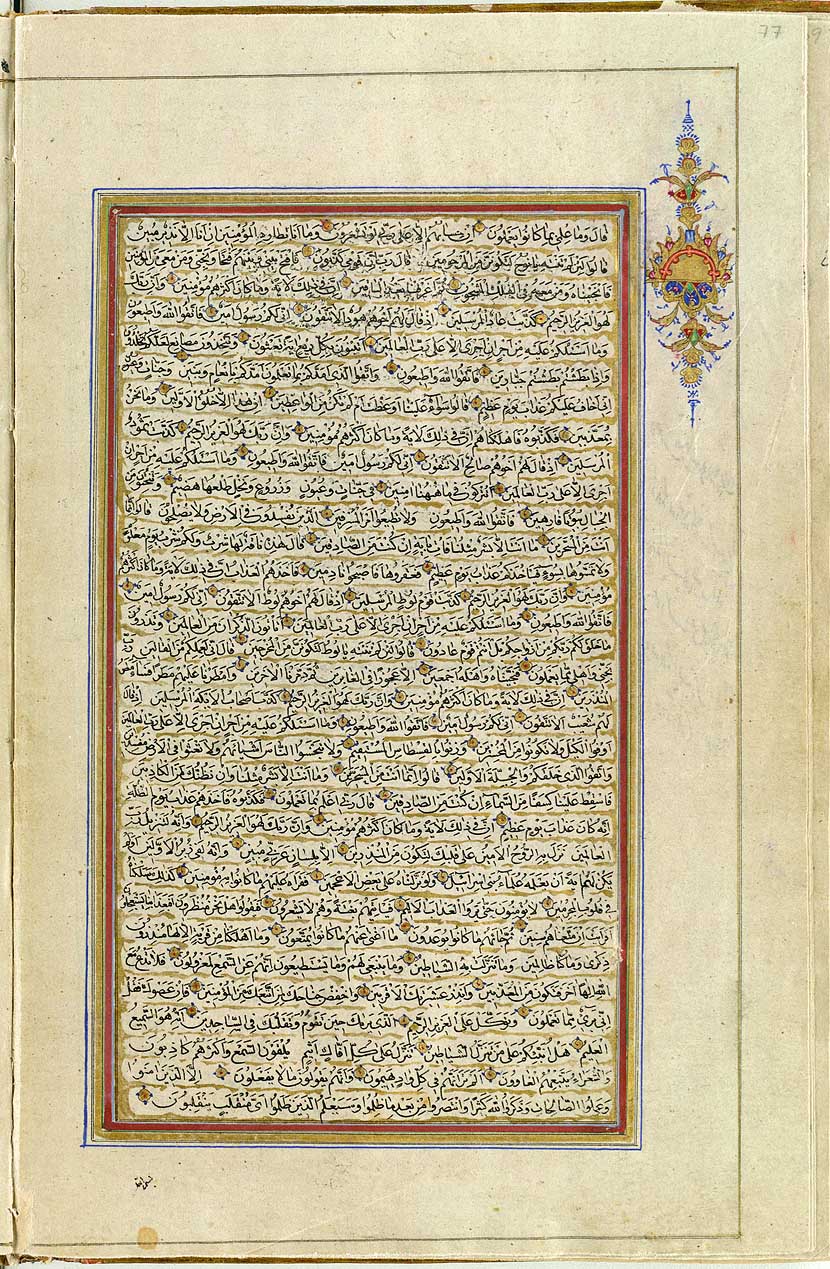 77
9
قال وما علمي بما كانوا يعملون ان حسابهم الا على ربي لو تشعرون وما انا بطارد المؤمنين ان انا الا نذير مبين
قالوا لئن لم تنته يا نوح لتكونن من المرجومين قال رب ان قومي كذبون فافتح بيني وبينهم فتحا ونجني ومن معي من المؤمنين
فانجيناه ومن معه في الفلك المشحون ثم اغرقنا بعد الباقين ان في ذلك لاية وما كان اكثرهم مؤمنين وان ربك
لهو العزيز الرحيم كذبت عاد المرسلين اذ قال لهم اخوهم هود الا تتقون اني لكم رسول امين فاتقوا الله واطيعون
وما اسئلكم عليه من اجر ان اجري الا على رب العالمين اتبنون بكل ريع اية تعبثون وتتخذون مصانع لعلكم تخلدون
واذا بطشتم بطشتم جبارين فاتقوا الله واطيعون واتقوا الذي امدكم بما تعلمون امدكم بانعام وبنين وجنات وعيون
اني اخاف عليكم عذاب يوم عظيم قالوا سواء علينا اوعظت ام لم تكن من الواعظين ان هذا الا خلق الاولين وما نحن
بمعذبين فكذبوه فاهلكناهم ان في ذلك لاية وما كان اكثرهم مؤمنين وان ربك لهو العزيز الرحيم كذبت ثمود
المرسلين اذ قال لهم اخوهم صالح الا تتقون اني لكم رسول امين فاتقوا الله واطيعون وما اسئلكم عليه من اجر ان
اجري الا على رب العالمين اتتركون في ما ههنا امنين في جنات وعيون وزروع ونخل طلعها هضيم وتنحتون من
الجبال بيوتا فارهين فاتقوا الله واطيعون ولا تطيعوا امر المسرفين الذين يفسدون في الارض ولا يصلحون قالوا انما
انت من المسحرين ما انت الا بشر مثلنا فات باية ان كنت من الصادقين قال هذه ناقة لها شرب ولكم شرب يوم معلوم
ولا تمسوها بسوء فياخذكم عذاب يوم عظيم فعقروها فاصبحوا نادمين فاخذهم العذاب ان في ذلك لاية وما كان اكثرهم
مؤمنين وان ربك لهو العزيز الرحيم كذبت قوم لوط المرسلين اذ قال لهم اخوهم لوط الا تتقون اني لكم رسول امين
فاتقوا الله واطيعون وما اسئلكم عليه من اجر ان اجري الا على رب العالمين اتاتون الذكران من العالمين وتذرون
ما خلق لكم ربكم من ازواجكم بل انتم قوم عادون قالوا لئن لم تنته يا لوط لتكونن من المخرجين قال اني لعملكم من القالين رب
نجني واهلي مما يعملون فنجيناه واهله اجمعين الا عجوزا في الغابرين ثم دمرنا الاخرين وامطرنا عليهم مطرا فساء مطر
المنذرين ان في ذلك لاية وما كان اكثرهم مؤمنين وان ربك لهو العزيز الرحيم كذب اصحاب الايكة المرسلين اذ قال
لهم شعيب الا تتقون اني لكم رسول امين فاتقوا الله واطيعون وما اسئلكم عليه من اجر ان اجري الا على رب العالمين
اوفوا الكيل ولا تكونوا من المخسرين وزنوا بالقسطاس المستقيم ولا تبخسوا الناس اشياءهم ولا تعثوا في الارض مفسدين
واتقوا الذي خلقكم والجبلة الاولين قالوا انما انت من المسحرين وما انت الا بشر مثلنا وان نظنك لمن الكاذبين
فاسقط علينا كسفا من السماء ان كنت من الصادقين قال ربي اعلم بما تعملون فكذبوه فاخذهم عذاب يوم الظلة
انه كان عذاب يوم عظيم ان في ذلك لاية وما كان اكثرهم مؤمنين وان ربك لهو العزيز الرحيم وانه لتنزيل رب
العالمين نزل به الروح الامين على قلبك لتكون من المنذرين بلسان عربي مبين وانه لفي زبر الاولين اولم
يكن لهم اية ان يعلمه علماء بني اسرائيل ولو نزلناه على بعض الاعجمين فقراه عليهم ما كانوا به مؤمنين كذلك سلكناه
في قلوب المجرمين لا يؤمنون به حتى يروا العذاب الاليم فياتيهم بغتة وهم لا يشعرون فيقولوا هل نحن منظرون افبعذابنا يستعجلون
افرايت ان متعناهم سنين ثم جاءهم ما كانوا يوعدون ما اغنى عنهم ما كانوا يمتعون وما اهلكنا من قرية الا لها منذرون
ذكرى وما كنا ظالمين وما تنزلت به الشياطين وما ينبغي لهم وما يستطيعون انهم عن السمع لمعزولون فلا تدع مع
الله الها اخر فتكون من المعذبين وانذر عشيرتك الاقربين واخفض جناحك لمن اتبعك من المؤمنين فان عصوك فقل
اني بريء مما تعملون وتوكل على العزيز الرحيم الذي يريك حين تقوم وتقلبك في الساجدين انه هو السميع
العليم هل انبئكم على من تنزل الشياطين تنزل على كل افاك اثيم يلقون السمع واكثرهم كاذبون
والشعراء يتبعهم الغاوون الم تر انهم في كل واد يهيمون وانهم يقولون ما لا يفعلون الا الذين امنوا
وعملوا الصالحات وذكروا الله كثيرا وانتصروا من بعد ما ظلموا وسيعلم الذين ظلموا اي منقلب ينقلبون
بسم الله